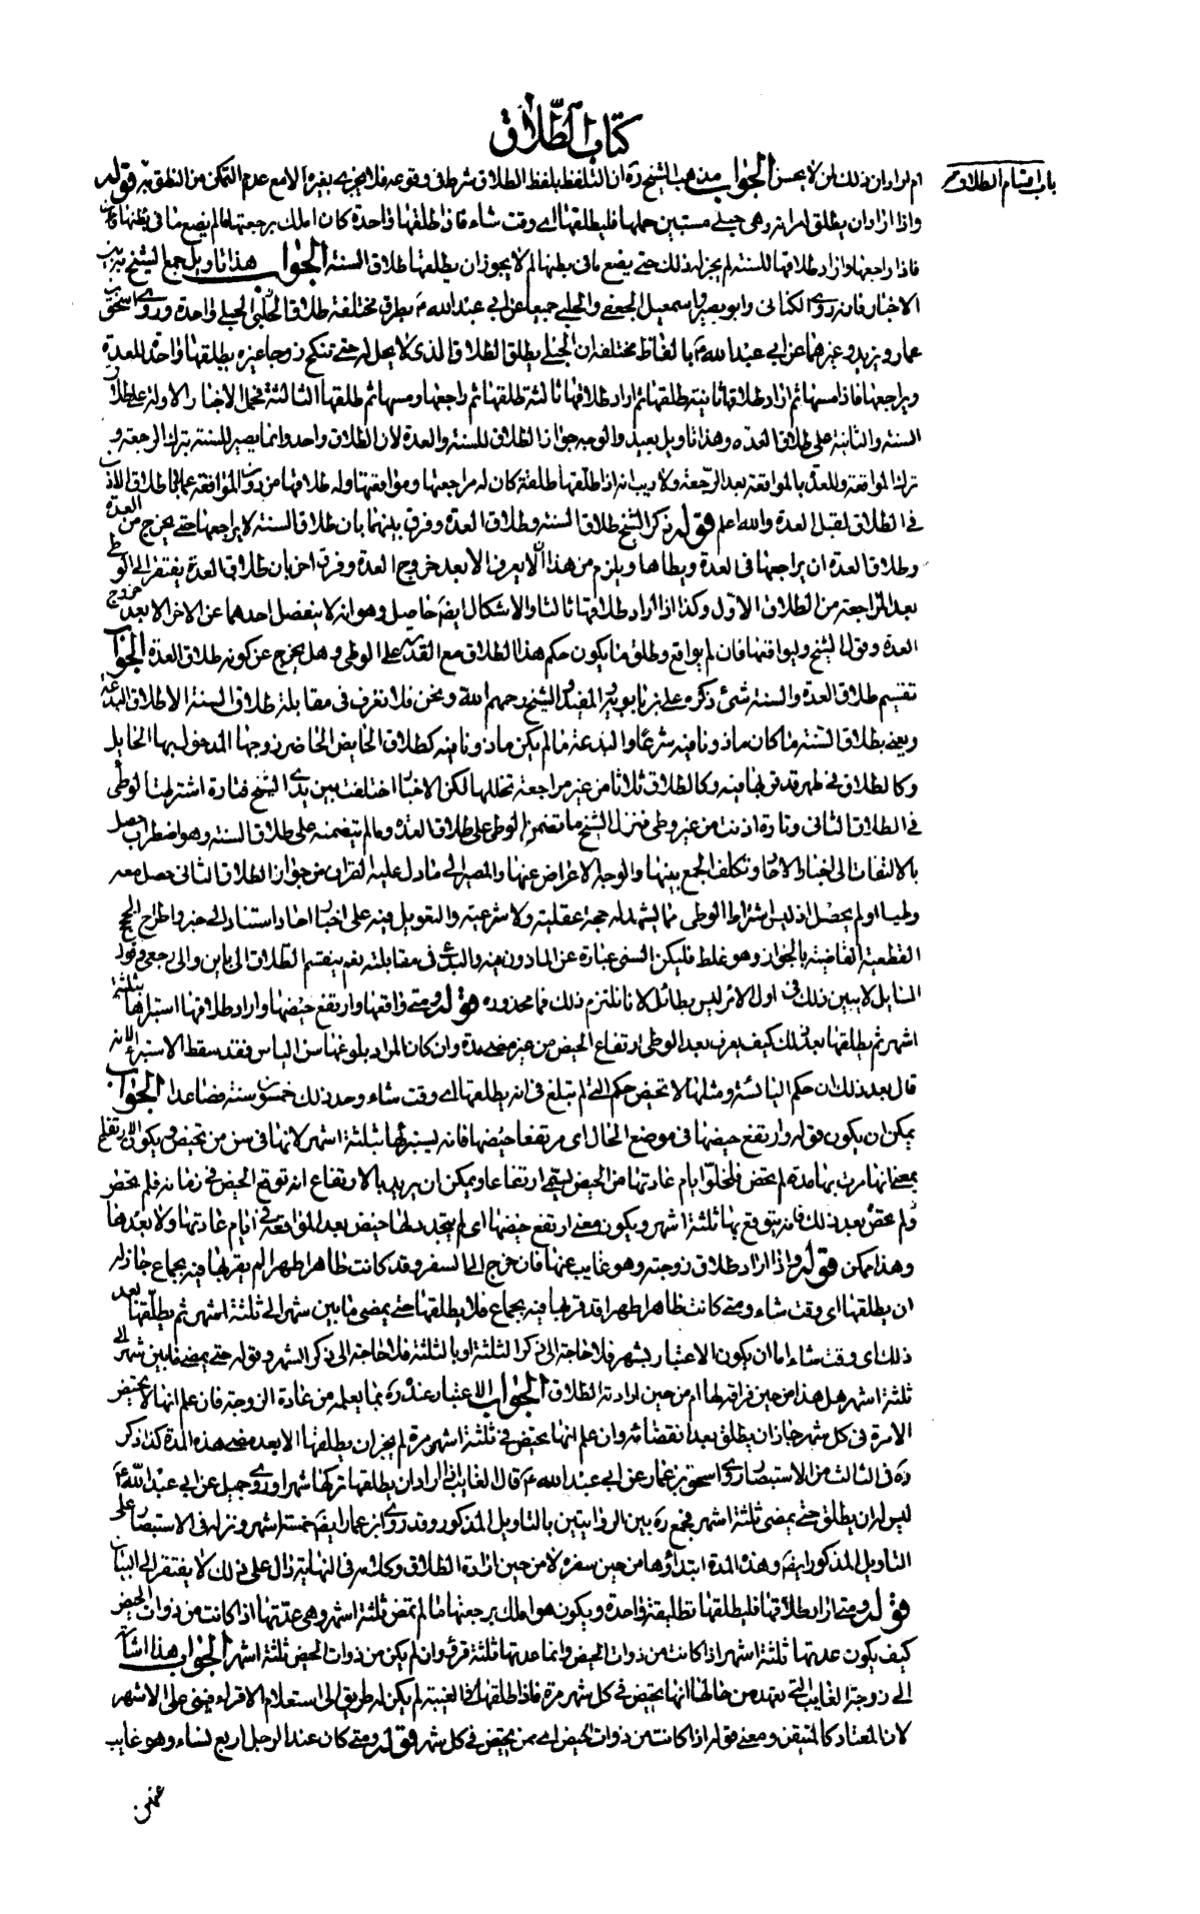 كتاب الطلاق
باب اقسام الطلاق
ام لو اراد ان ذلك لمن لا يحسن الجواب مذهب الشيخ ره ان التلفظ بلفظ الطلاق شرط في وقوعه فلا يجزى بغيره الا مع عدم التمكن من النطق به قوله
واذا اراد ان يطلق امراته وهى حبلى مستبين حملها فليطلقها اى وقت شاء فاذا طلقها واحدة كان املك برجعتها ما لم يضع ما في بطنها
فاذا راجعها واراد طلاقها للسنة لم يجز له ذلك حتى يضع ما في بطنها لم لا يجوز ان يطلقها طلاق السنة الجواب هذا تاويل جمع الشيخ به بين
الاخبار فانه روى الكنانى وابو بصير واسمعيل الجعفى والحلبى جميعا عن ابى عبد الله ع بطرق مختلفة طلاق الحبلى واحدة وروى اسحق
عمار ويزيد وغيرهما عن ابى عبد الله ع بالفاظ مختلفة ان الحبلى يطلق الطلاق الذى لا يحل له حتى تنكح زوجا غيره يطلقها واحدة للعدة
ويراجعها فاذا مسها ثم اراد طلاقها ثانية طلقها ثم اراد طلاقها ثالثة طلقها ثم راجعها ومسها ثم طلقها الثالثة فحمل الاخبار الاولة على طلاق
السنة والثانية على طلاق العدة وهذا تاويل بعيد والوجه جواز الطلاق للسنة والعدة لان الطلاق واحد وانما يصير للسنة بترك الرجعة و
ترك المواقعة وللعدة بالمواقعة بعد الرجعة ولا ريب انه اذا طلقها طلقة كان له مراجعتها ومواقعتها وله طلاقها من دون المواقعة عملا
في الطلاق لقبل العدة والله اعلم قوله ذكر الشيخ طلاق السنة وطلاق العدة وفرق بينهما بان طلاق السنة لا يراجعها حتى يخرج من العدة
وطلاق العدة ان يراجعها في العدة ويطاها ويلزم من هذا ان لا يعرف الا بعد خروج العدة وفرق اخر بان طلاق العدة يفتقر الى الوطى
بعد المراجعة من الطلاق الاول وكذا اذا اراد طلاقها ثالثا والاشكال ايضا حاصل وهو انه لا ينفصل احدهما عن الاخر الا بعد خروج
العدة وقول الشيخ وليواقعها فان لم يواقع وطلق ما يكون حكم هذا الطلاق مع القدرة على الوطى وهل يخرج عن كونه طلاق العدة الجواب
تقسيم طلاق العدة والسنة شئ ذكره على بن بابويه والمفيد والشيخ رحمهم الله ونحن فلا نعرف في مقابلة طلاق السنة الا طلاق البدعة
ونعنى بطلاق السنة ما كان ماذونا فيه شرعا والبدعة ما لم يكن ماذونا فيه كطلاق الحايض الحاضر زوجها المدخول بها الحايل
وكالطلاق في طهر قد قربها فيه وكالطلاق ثلاثا من غير مراجعة تخللها لكن الاخبار اختلفت بين يدى الشيخ فتارة اشترطت الوطى
في الطلاق الثانى وتارة اذنت من غير وطى فنزل الشيخ ما تضمن الوطى على طلاق العدة وما لم يتضمنه على طلاق السنة وهو اضطراب حصل
بالالتفات الى اخبار الاحاد وتكلف الجمع بينها والوجه الاعراض عنها والمصير الى ما دل عليه القران من جواز الطلاق الثانى حصل معه
وطيا او لم يحصل اذ ليس اشتراط الوطى مما يشهد له حجة عقلية ولا شرعية والتعويل فيه على اخبار احاد استناد الى خبر واطراح الحجج
القطعية القاضية بالجواز وهو غلط فليكن السنى عبارة عن الماذون فيه والبدعى في مقابلته نعم ينقسم الطلاق الى باين والى رجعى وقول
القايل لا يبين ذلك في اول الامر ليس بطائل لانا نلتزم ذلك فما محذوره قوله ومتى واقعها وارتفع حيضها واراد طلاقها استبراها بثلثة
اشهر ثم يطلقها بعد ذلك كيف يعرف بعد الوطى ارتفاع الحيض من غير مضى مدة وان كان المراد بلوغها سن الياس فقد سقط الاستبراء لانه
قال بعد ذلك ان حكم اليائسة ومثلها لا تحيض حكم التى لم تبلغ في انه يطلقها اى وقت شاء وحد ذلك خمسون سنة فصاعدا الجواب
يمكن ان يكون قوله وارتفع حيضها في موضع الحال اى مرتفعا حيضها فانه يستبرئها بثلثة اشهر لانها في سن من تحيض ويكون ارتفع
بمعنى انها مرت بها مدة لم تحض فخلو ايام عادتها من الحيض يسمى ارتفاعا ويمكن ان يريد بالارتفاع انه توقع الحيض في زمانه فلم تحض
ولم تحض بعد ذلك فانه يتوقع بها ثلثة اشهر ويكون معنى ارتفع حيضها اى لم يتجدد لها حيض بعد المواقعة في ايام عادتها ولا بعدها
وهذا ممكن قوله واذا اراد طلاق زوجته وهو غايب عنها فان خرج الى السفر وقد كانت طاهرا طهرا لم يقربها فيه بجماع جاز له
ان يطلقها اى وقت شاء ومتى كانت طاهرا طهرا قد قربها فيه بجماع فلا يطلقها حتى يمضى ما بين شهر الى ثلثة اشهر ثم يطلقها بعد
ذلك اى وقت شاء اما ان يكون الاعتبار بشهر فلا حاجة الى ذكر الثلثة او بالثلثة فلا حاجة الى ذكر الشهر وقوله حتى يمضى ما بين شهر الى
ثلثة اشهر هل هذا من حين فراقه لها ام من حين ارادته الطلاق الجواب الاعتبار عنده ره بما يعلمه من عادة الزوجة فان علم انها لا تحيض
الا مرة في كل شهر جاز ان يطلق بعد انقضائه وان علم انها تحيض في ثلثة اشهر مرة لم يجز ان يطلقها الا بعد مضى هذه المدة كذا ذكر
ره في الثالث من الاستبصار روى اسحق بن عمار عن ابى عبد الله ع قال الغايب اذا اراد ان يطلقها تركها شهرا وروى جميل عن ابى عبد الله ع
ليس له ان يطلق حتى يمضى ثلثة اشهر فجمع ره بين الروايتين بالتاويل المذكور وقد روى ابن عمار ايضا خمسة اشهر ونزله في الاستبصار على
التاويل المذكور ايضا وهذه المدة ابتداؤها من حين سفره لا من حين ارادة الطلاق وكلامه في النهاية دال على ذلك لا يفتقر الى البيان
قوله ومتى اراد طلاقها فليطلقها تطليقة واحدة ويكون هو املك برجعتها ما لم تمض ثلثة اشهر وهى عدتها اذا كانت من ذوات الحيض
كيف يكون عدتها ثلثة اشهر اذا كانت من ذوات الحيض وانما عدتها ثلثة قروء وان لم يكن من ذوات الحيض ثلثة اشهر الجواب هذا اشارة
الى زوجة الغايب التى يعهد من حالها انها تحيض في كل شهر مرة فاذا طلقها في الغيبة لم يكن له طريق الى استعلام الاقراء فبنى على الاشهر
لان المعتاد كالمتيقن ومعنى قوله اذا كانت من ذوات الحيض اى ممن يحيض في كل شهر قوله ومتى كان عند الرجل اربع نساء وهو غايب
عنهن